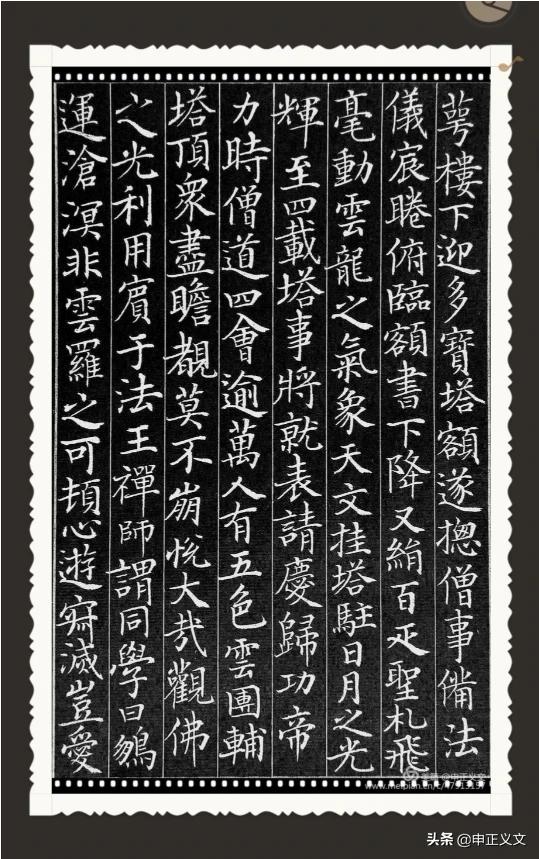 萼樓下迎多寶塔額遂摠僧事備法
儀宸睠俯臨額書下降又絹百疋聖札飛
毫動雲龍之氣象天文挂塔駐日月之光
輝至四載塔事將就表請慶歸功帝
力時僧道四會逾萬人有五色雲團輔
塔頂眾盡瞻覩莫不崩悅大哉觀佛
之光利用賓于法王禪師謂同學曰鵬
運滄溟非雲羅之可頓心遊寂滅豈愛
美篇 @申正义文
头条 @申正义文